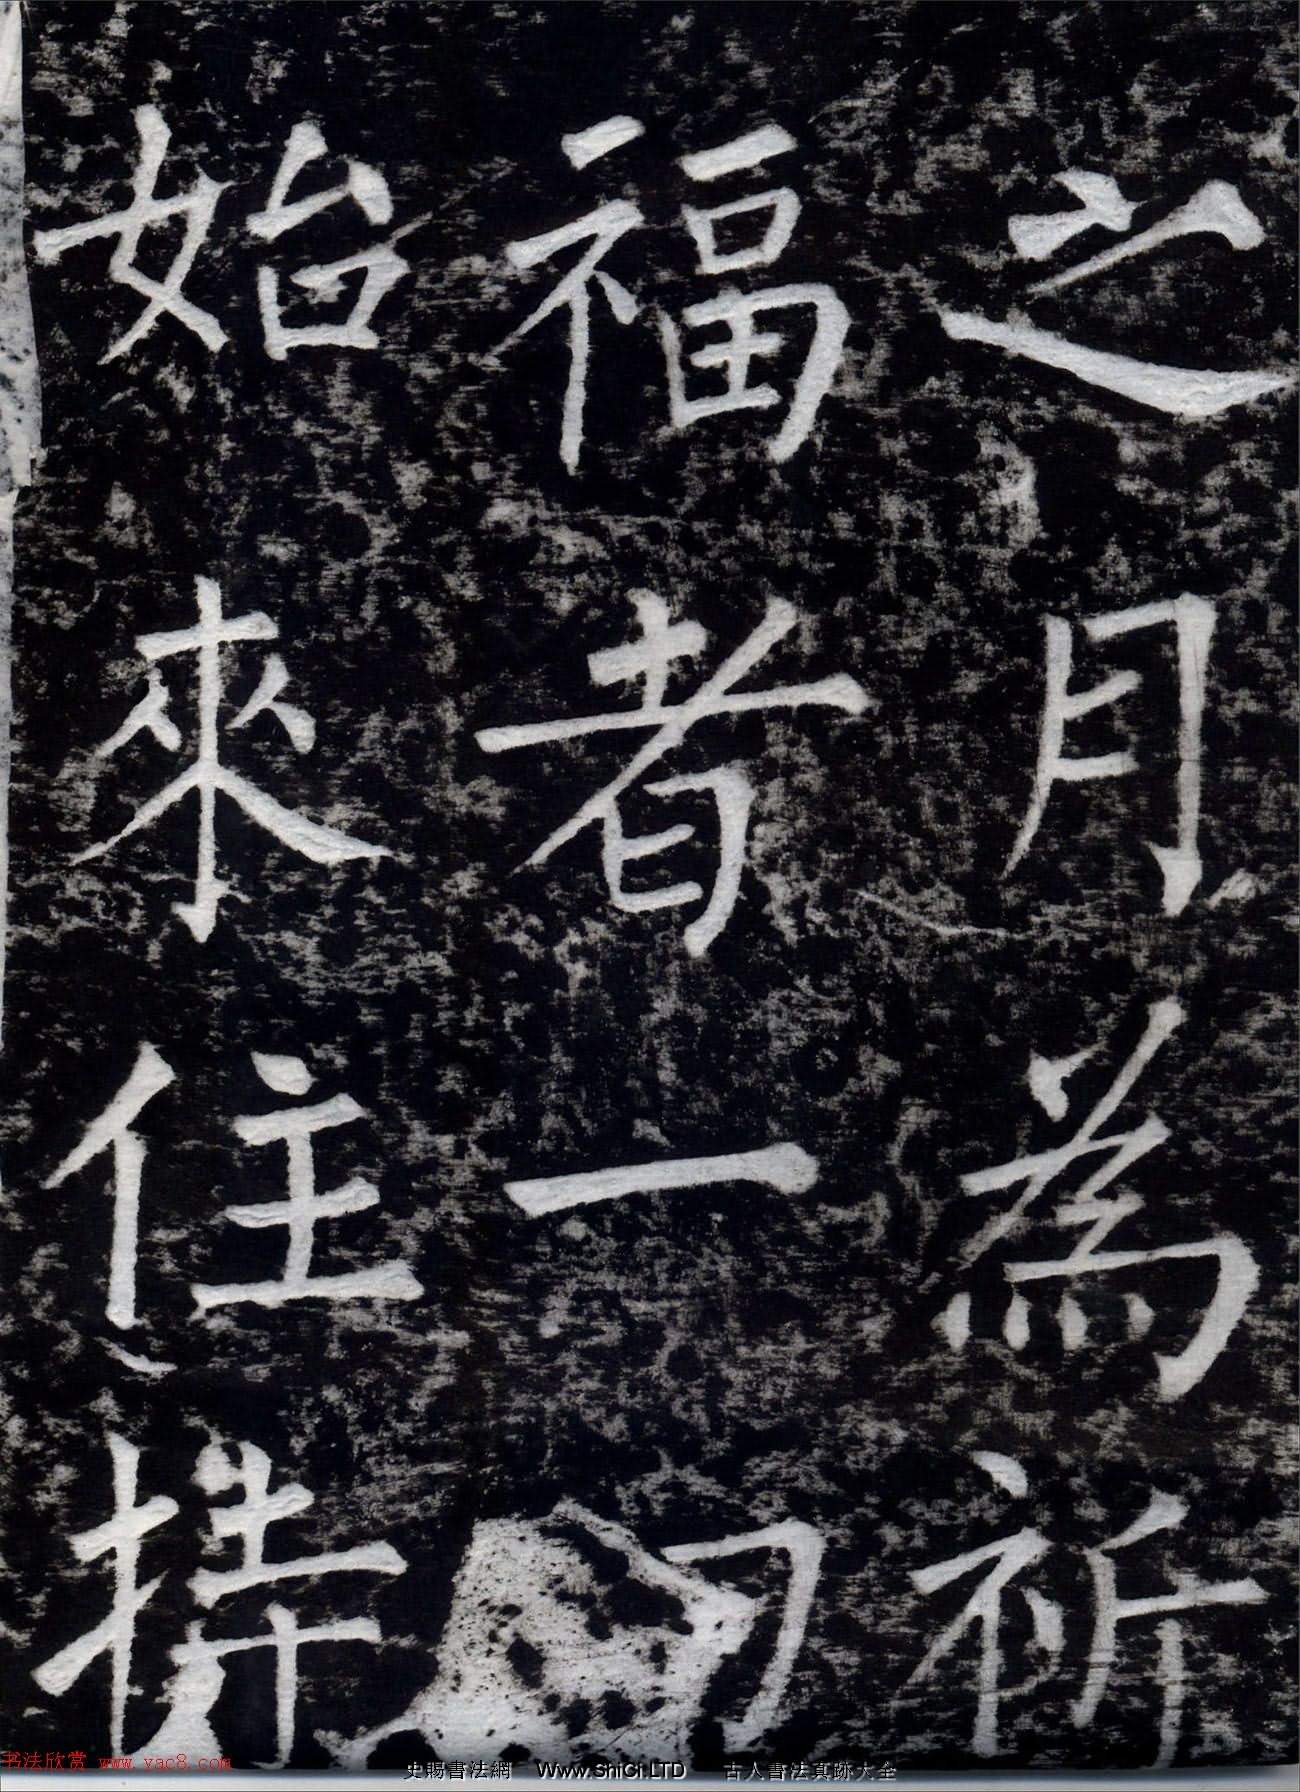 之月為祈
福者一
始來住持
书法欣赏 www.yac8.com
史賜書法網 Www.ShiCi.LTD 古人書法真跡大全